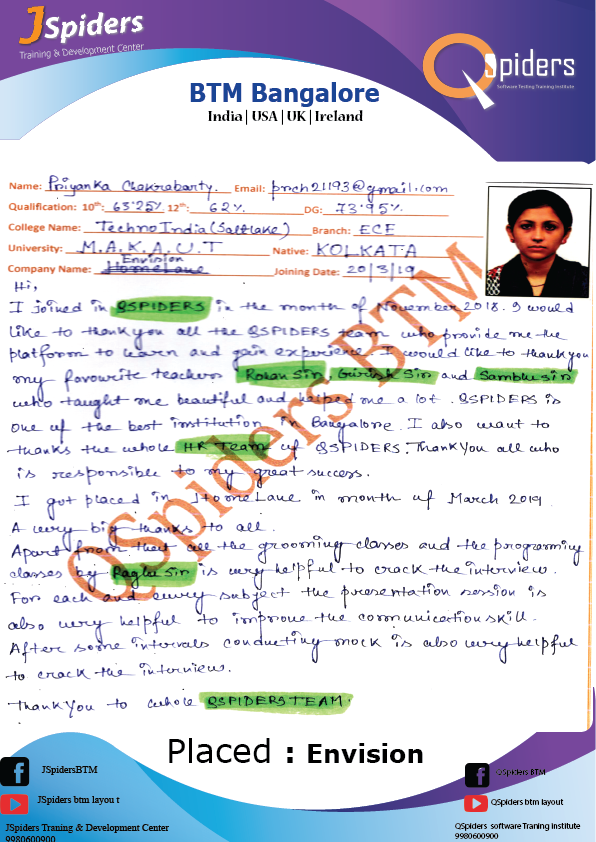 JSpiders
Training & Development Center
QSpiders
Software Testing Training Institute
BTM Bangalore
India | USA | UK | Ireland
Name: Priyanka Chakrabarty. Email: prich21193@gmail.com
Qualification: 10th: 63.25% 12th: 62% DG: 73.95%
College Name: Techno India (Saltlake) Branch: ECE
University: M.A.K.A.U.T Native: KOLKATA
Envision
Company Name: HomeLane Joining Date: 20/3/19
Hi,
I joined in QSPIDERS in the month of November 2018. I would
like to thank you all the QSPIDERS team who provide me the
platform to learn and gain experience. I would like to thank you
my favourite teachers Rohan Sir, Girish Sir and Sambhu sir
who taught me beautiful and helped me a lot. QSPIDERS is
one of the best institution in Bangalore. I also want to
thanks the whole HR Team of QSPIDERS. Thank you all who
is responsible to my great success.
I got placed in HomeLane in month of March 2019.
A very big thanks to all.
Apart from that all the grooming classes and the programing
classes by Raghu Sir is very helpful to crack the interview.
For each and every subject the presentation session is
also very helpful to improve the communication skill.
After some intervals conducting mock is also very helpful
to crack the interview.
Thank You to whole QSPIDERS TEAM.
QSpiders BTM
Placed : Envision
JSpidersBTM
JSpiders btm layou t
JSpiders Traning & Development Center
9980600900
QSpiders BTM
QSpiders btm layout
QSpiders software Traning institute
9980600900